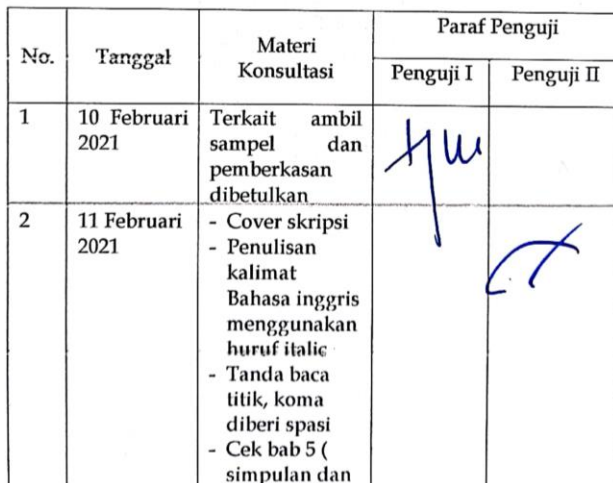 No.
Tanggal
Materi
Konsultasi
Paraf Penguji
Penguji I
Penguji II
1
10 Februari
2021
Terkait ambil
sampel dan
pemberkasan
dibetulkan
2
11 Februari
2021
- Cover skripsi
- Penulisan
kalimat
Bahasa inggris
menggunakan
huruf italic
- Tanda baca
titik, koma
diberi spasi
- Cek bab 5 (
simpulan dan